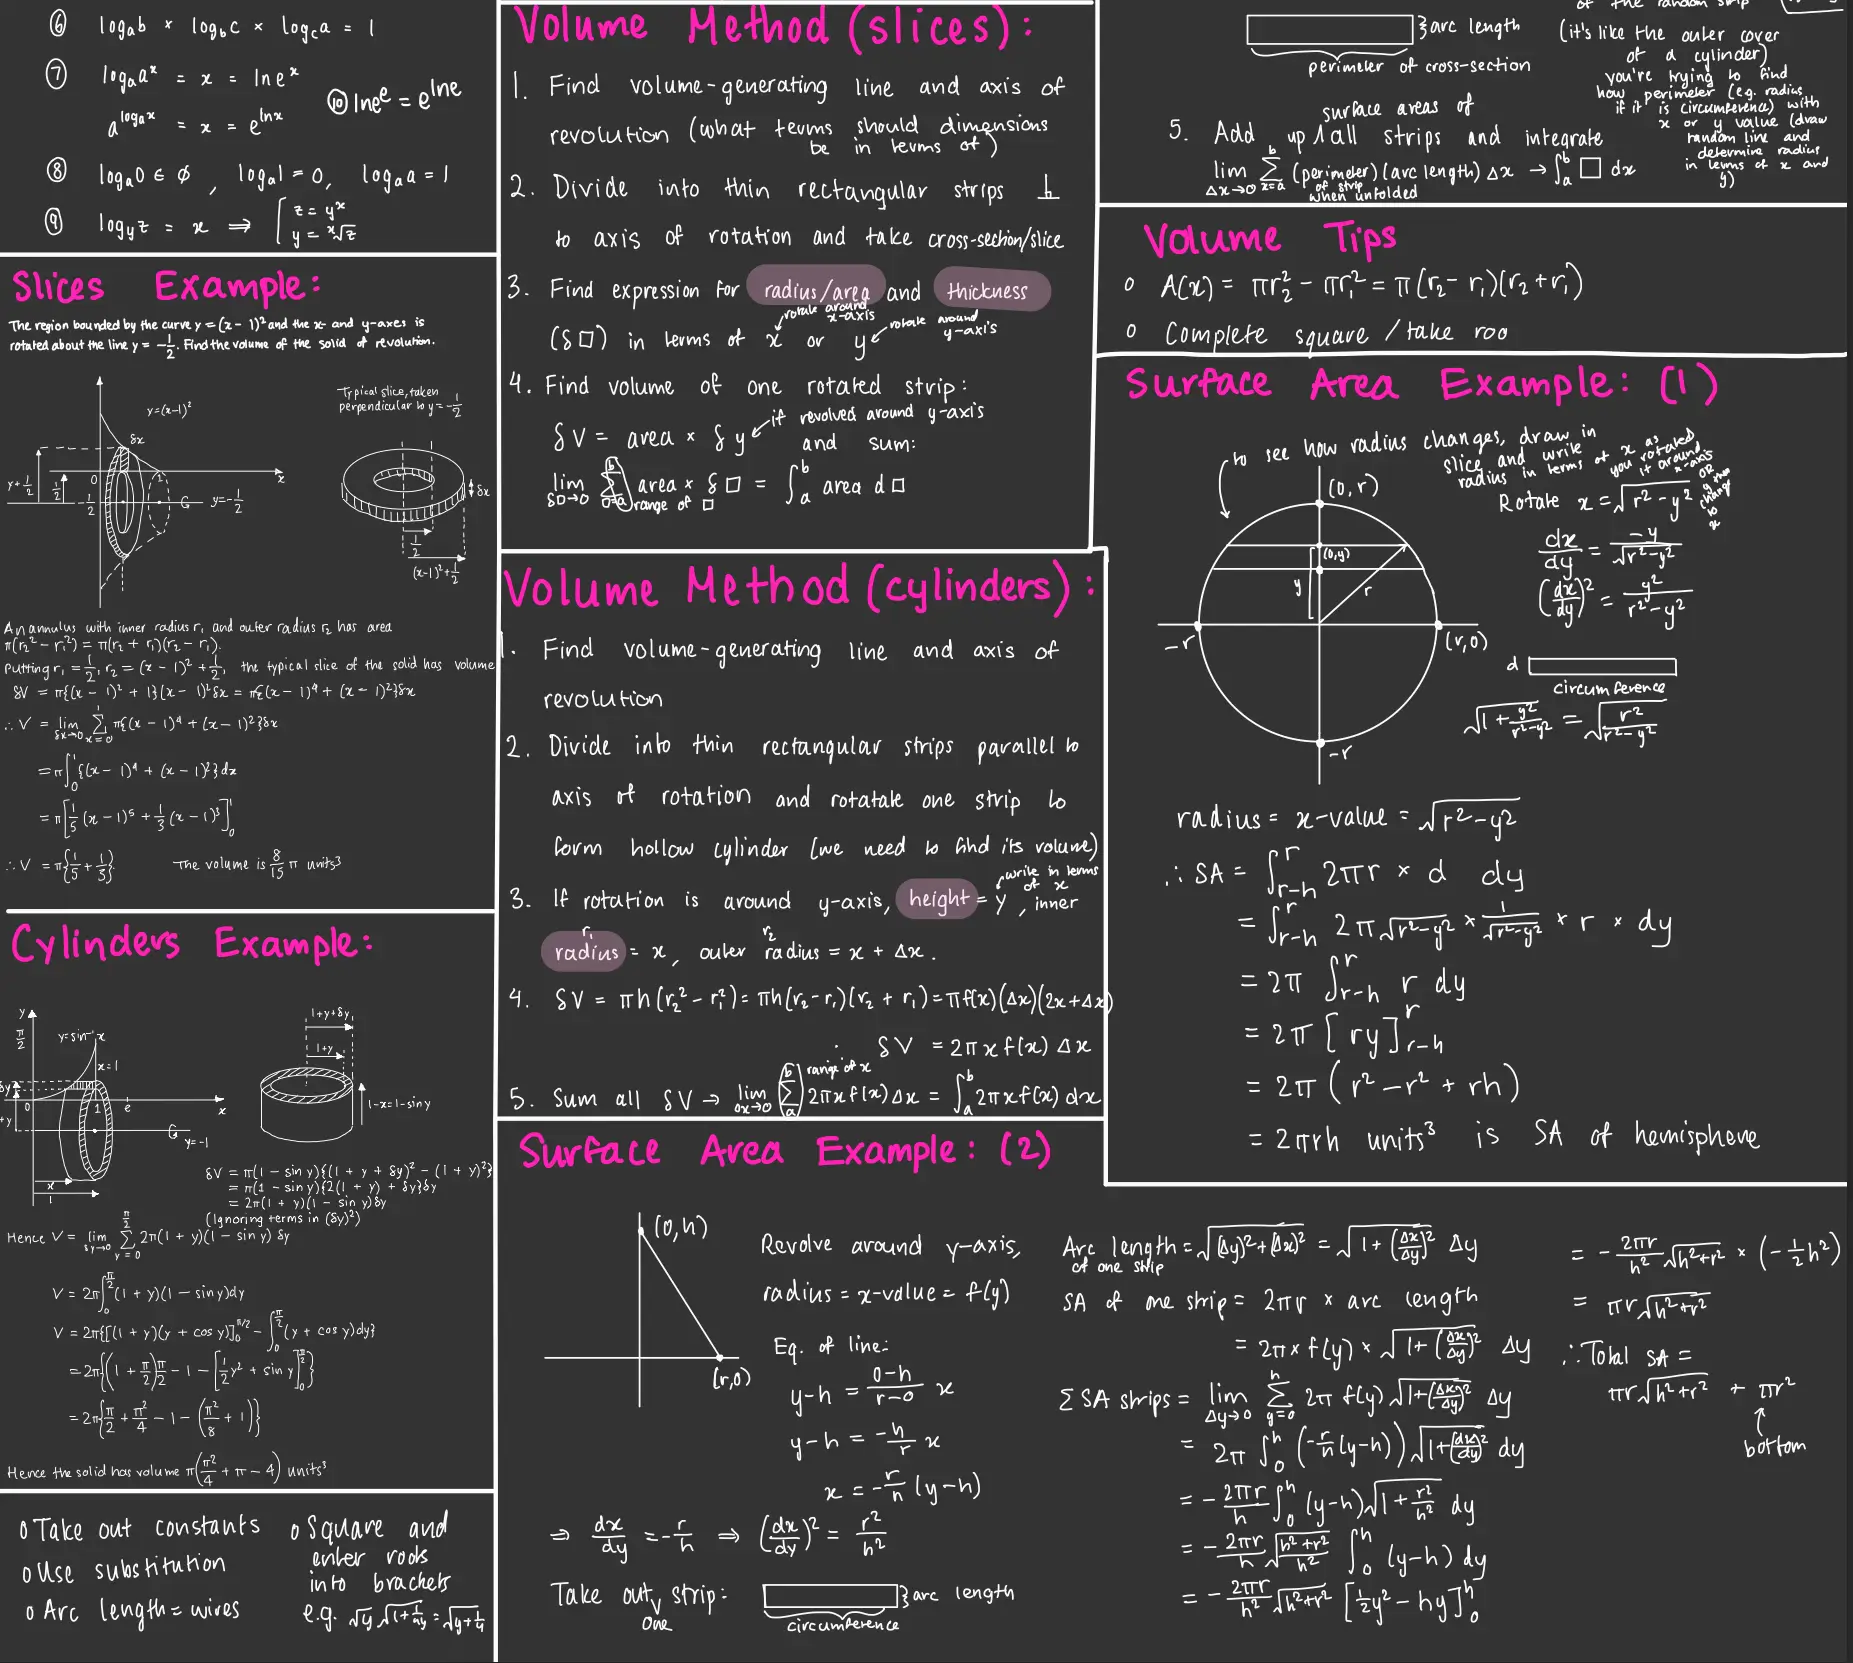 ⑥ logₐb × log_b c × log_c a = 1
⑦ logₐaˣ = x = ln eˣ
a^(logₐx) = x = e^(lnx)
⑩ lneᵉ = e^(lne)
⑧ logₐ0 ∈ ∅ , logₐ1 = 0, logₐa = 1
⑨ log_y z = x ⟹ { z = yˣ
y = ˣ√z
Slices Example:
The region bounded by the curve y = (x - 1)² and the x- and y-axes is
rotated about the line y = -1/2. Find the volume of the solid of revolution.
y=(x-1)²
δx
y+1/2
1/2
0
1/2
x
y=-1/2
Typical slice, taken
perpendicular to y = -1/2
δx
1/2
(x-1)²+1/2
An annulus with inner radius r₁ and outer radius r₂ has area
π(r₂² - r₁²) = π(r₂ + r₁)(r₂ - r₁).
Putting r₁ = 1/2, r₂ = (x - 1)² + 1/2, the typical slice of the solid has volume
δV = π{(x - 1)² + 1}(x - 1)²δx = π{(x - 1)⁴ + (x - 1)²}δx
∴ V = lim δx→0 Σ x=0 1 π{(x - 1)⁴ + (x - 1)²}δx
= π∫₀¹{(x - 1)⁴ + (x - 1)²}dx
= π[1/5 (x - 1)⁵ + 1/3 (x - 1)³]₀¹
∴ V = π{1/5 + 1/3}. The volume is 8/15 π units³
Cylinders Example:
y
π/2
y=sin⁻¹x
x=1
δy
0
1
e
x
y=-1
x
1
1+y+δy
1+y
1-x=1-siny
δV = π(1 - sin y){(1 + y + δy)² - (1 + y)²}
= π(1 - sin y){2(1 + y) + δy}δy
= 2π(1 + y)(1 - sin y)δy
(Ignoring terms in (δy)²)
Hence V = lim δy→0 Σ y=0 π/2 2π(1 + y)(1 - sin y) δy
V = 2π∫₀^(π/2)(1 + y)(1 - sin y)dy
V = 2π{[(1 + y)(y + cos y)]₀^(π/2) - ∫₀^(π/2)(y + cos y)dy}
= 2π{(1 + π/2)π/2 - 1 - [1/2 y² + sin y]₀^(π/2)}
= 2π{π/2 + π²/4 - 1 - (π²/8 + 1)}
Hence the solid has volume π(π²/4 + π - 4) units³
o Take out constants
o Use substitution
o Arc length = wires
o Square and
enter roots
into brackets
e.g. √y √1+1/4y = √y+1/4
Volume Method (slices):
1. Find volume-generating line and axis of
revolution (what terms should dimensions
be in terms of)
2. Divide into thin rectangular strips ⊥
to axis of rotation and take cross-section/slice
3. Find expression for radius/area and thickness
(δ□) in terms of x or y
rotate around
x-axis
rotate around
y-axis
4. Find volume of one rotated strip:
δV = area × δy
if revolved around y-axis
and sum:
lim δ□→0 Σ □=a b area × δ□ = ∫ₐᵇ area d□
range of □
Volume Method (cylinders):
1. Find volume-generating line and axis of
revolution
2. Divide into thin rectangular strips parallel to
axis of rotation and rotatate one strip to
form hollow cylinder (we need to find its volume)
write in terms
of x
3. If rotation is around y-axis, height = y, inner
r₁ r₂
radius = x, outer radius = x + Δx.
4. δV = πh(r₂² - r₁²) = πh(r₂-r₁)(r₂ + r₁) = πf(x)(Δx)(2x+Δx)
∴ δV = 2πxf(x)Δx
range of x
5. Sum all δV → lim Δx→0 Σ a b 2πxf(x)Δx = ∫ₐᵇ 2πxf(x) dx
Surface Area Example: (2)
(0,h)
(r,0)
Revolve around y-axis,
radius = x-value = f(y)
Eq. of line:
y-h = 0-h/r-0 x
y-h = -h/r x
x = -r/h (y-h)
⟹ dx/dy = -r/h ⟹ (dx/dy)² = r²/h²
Take out one strip:
arc length
circumference
Arc length = √(Δy)²+(Δx)² = √1+(Δx/Δy)² Δy
of one strip
SA of one strip = 2πr × arc length
= 2π × f(y) × √1+(Δx/Δy)² Δy
Σ SA strips = lim Δy→0 Σ y=0 h 2π f(y) √1+(Δx/Δy)² Δy
= 2π ∫₀ʰ (-r/h (y-h)) √1+(dx/dy)² dy
= -2πr/h ∫₀ʰ (y-h) √1+r²/h² dy
= -2πr/h √h²+r²/h² ∫₀ʰ (y-h) dy
= -2πr/h² √h²+r² [1/2 y² - hy]₀ʰ
= -2πr/h² √h²+r² × (-1/2 h²)
= πr√h²+r²
∴ Total SA =
πr√h²+r² + πr²
bottom
arc length
perimeter of cross-section
of the random strip
(it's like the outer cover
of a cylinder)
you're trying to find
how perimeter (e.g. radius
if it is circumference) with
x or y value (draw
random line and
determine radius
in terms of x and
y)
surface areas of
5. Add up all strips and integrate
lim Δx→0 Σ x=a b (perimeter)(arc length) Δx → ∫ₐᵇ □ dx
of strip
when unfolded
Volume Tips
o A(x) = πr₂² - πr₁² = π(r₂ - r₁)(r₂ + r₁)
o Complete square / take roo
Surface Area Example: (1)
to see how radius changes, draw in
slice and write
radius in terms of x as
you rotated
it around
x-axis
OR
y then
change
to
x
(0,r)
(0,y)
y
r
-r
(r,0)
-r
Rotate x = √r²-y²
dx/dy = -y/√r²-y²
(dx/dy)² = y²/r²-y²
d
circumference
√1+y²/r²-y² = √r²/r²-y²
radius = x-value = √r²-y²
∴ SA = ∫ r-h r 2πr × d dy
= ∫ r-h r 2π√r²-y² × 1/√r²-y² × r × dy
= 2π ∫ r-h r r dy
= 2π [ry] r-h r
= 2π (r² - r² + rh)
= 2πrh units³ is SA of hemisphere